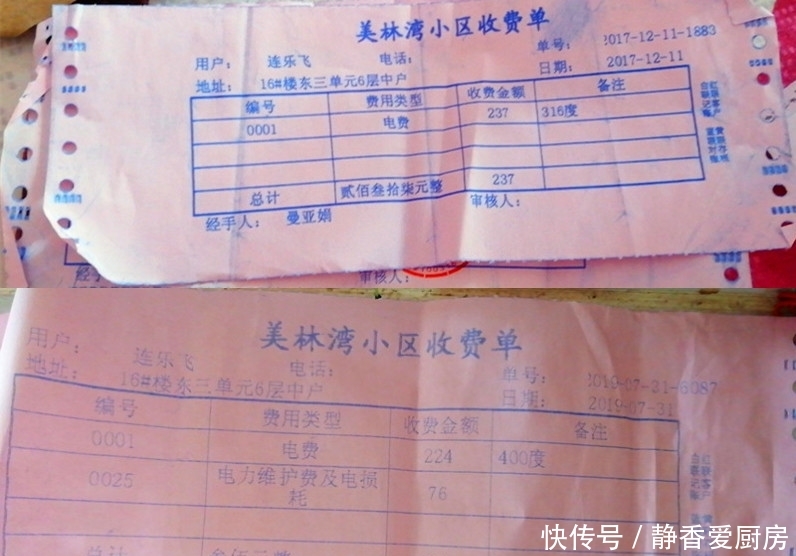 美林湾小区收费单
用户： 连乐飞 电话： 单号： 2017-12-11-1883
地址： 16#楼东三单元6层中户 日期： 2017-12-11
编号 费用类型 收费金额 备注
0001 电费 237 316度
总计 贰佰叁拾柒元整 237
经手人： 曼亚娟 审核人：
白联记账
红联客户
蓝联对账
黄联存根
审核人：
美林湾小区收费单
用户： 连乐飞 电话： 单号： 2019-07-31-6087
地址： 16#楼东三单元6层中户 日期： 2019-07-31
编号 费用类型 收费金额 备注
0001 电费 224 400度
0025 电力维护费及电损耗 76
白联记账
红联客户
总计 叁佰元整
快传号 / 静香爱厨房